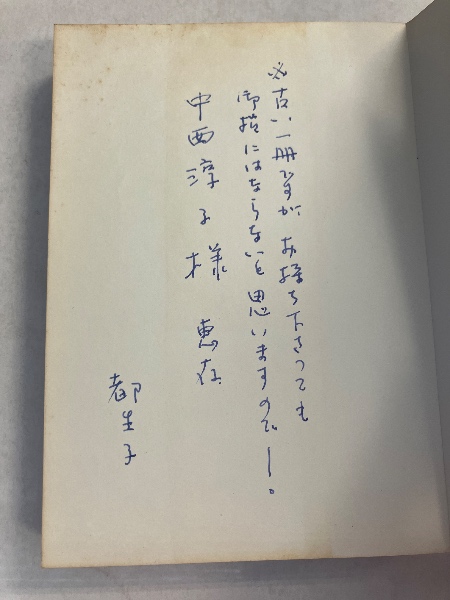 古い一冊ですが、お持ち下さっても
御損にはならないと思いますので―。
中西淳子様 恵存
都生子